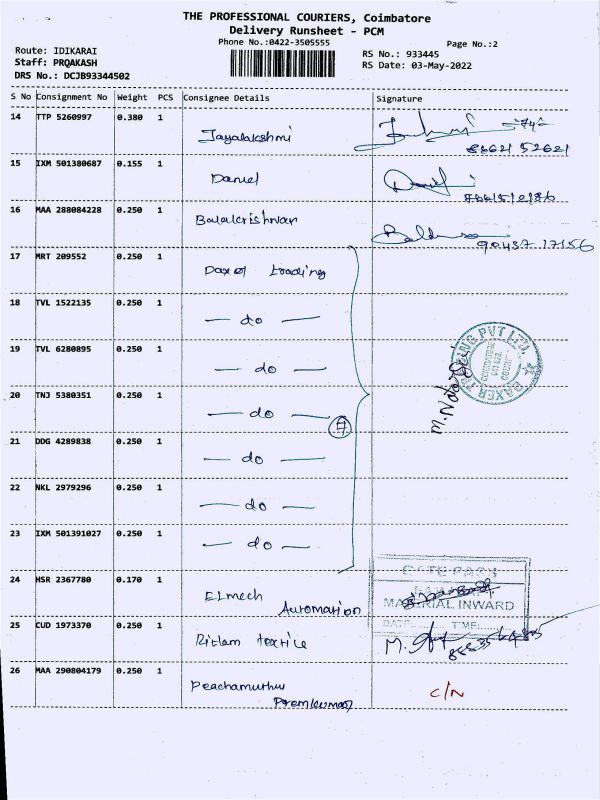 THE PROFESSIONAL COURIERS, Coimbatore
Delivery Runsheet - PCM
Phone No.:0422-3505555
Page No.:2
Route: IDIKARAI
Staff: PRQAKASH
DRS No.: DCJB93344502
RS No.: 933445
RS Date: 03-May-2022
S No Consignment No Weight PCS Consignee Details Signature
14 TTP 5260997 0.380 1 Jayalakshmi
15 IXM 501380687 0.155 1 Daniel
16 MAA 288084228 0.250 1 Balakrishnan
90437 17156
17 MRT 209552 0.250 1 Daxer trading
18 TVL 1522135 0.250 1 — do —
19 TVL 6280895 0.250 1 — do —
20 TNJ 5380351 0.250 1 — do —
21 DDG 4289838 0.250 1 — do —
22 NKL 2979296 0.250 1 — do —
23 IXM 501391027 0.250 1 — do —
24 HSR 2367780 0.170 1 Elmech
Automation
GATE PASS
MATERIAL INWARD
DATE: TIME:
25 CUD 1973370 0.250 1 textile
26 MAA 290804179 0.250 1 Peachamuthu
Premkumar
C/N